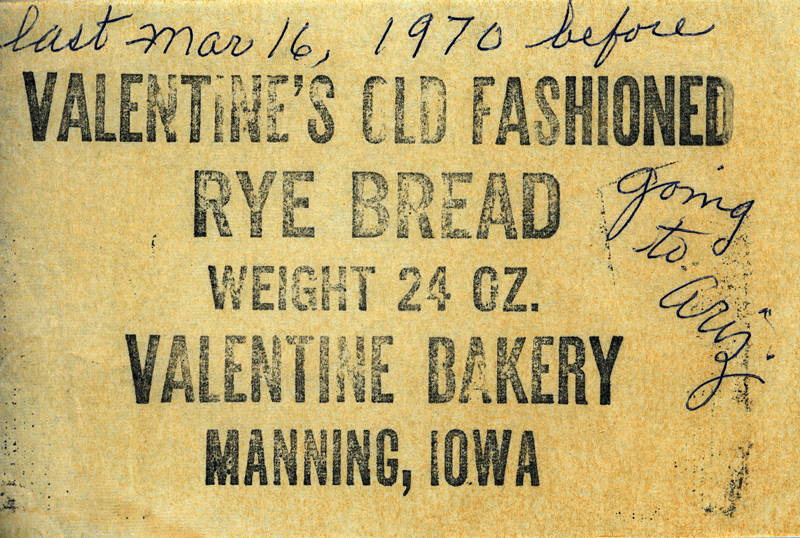 last Mar 16, 1970 before
VALENTINE'S OLD FASHIONED
RYE BREAD
going
to
Ariz.
WEIGHT 24 OZ.
VALENTINE BAKERY
MANNING, IOWA